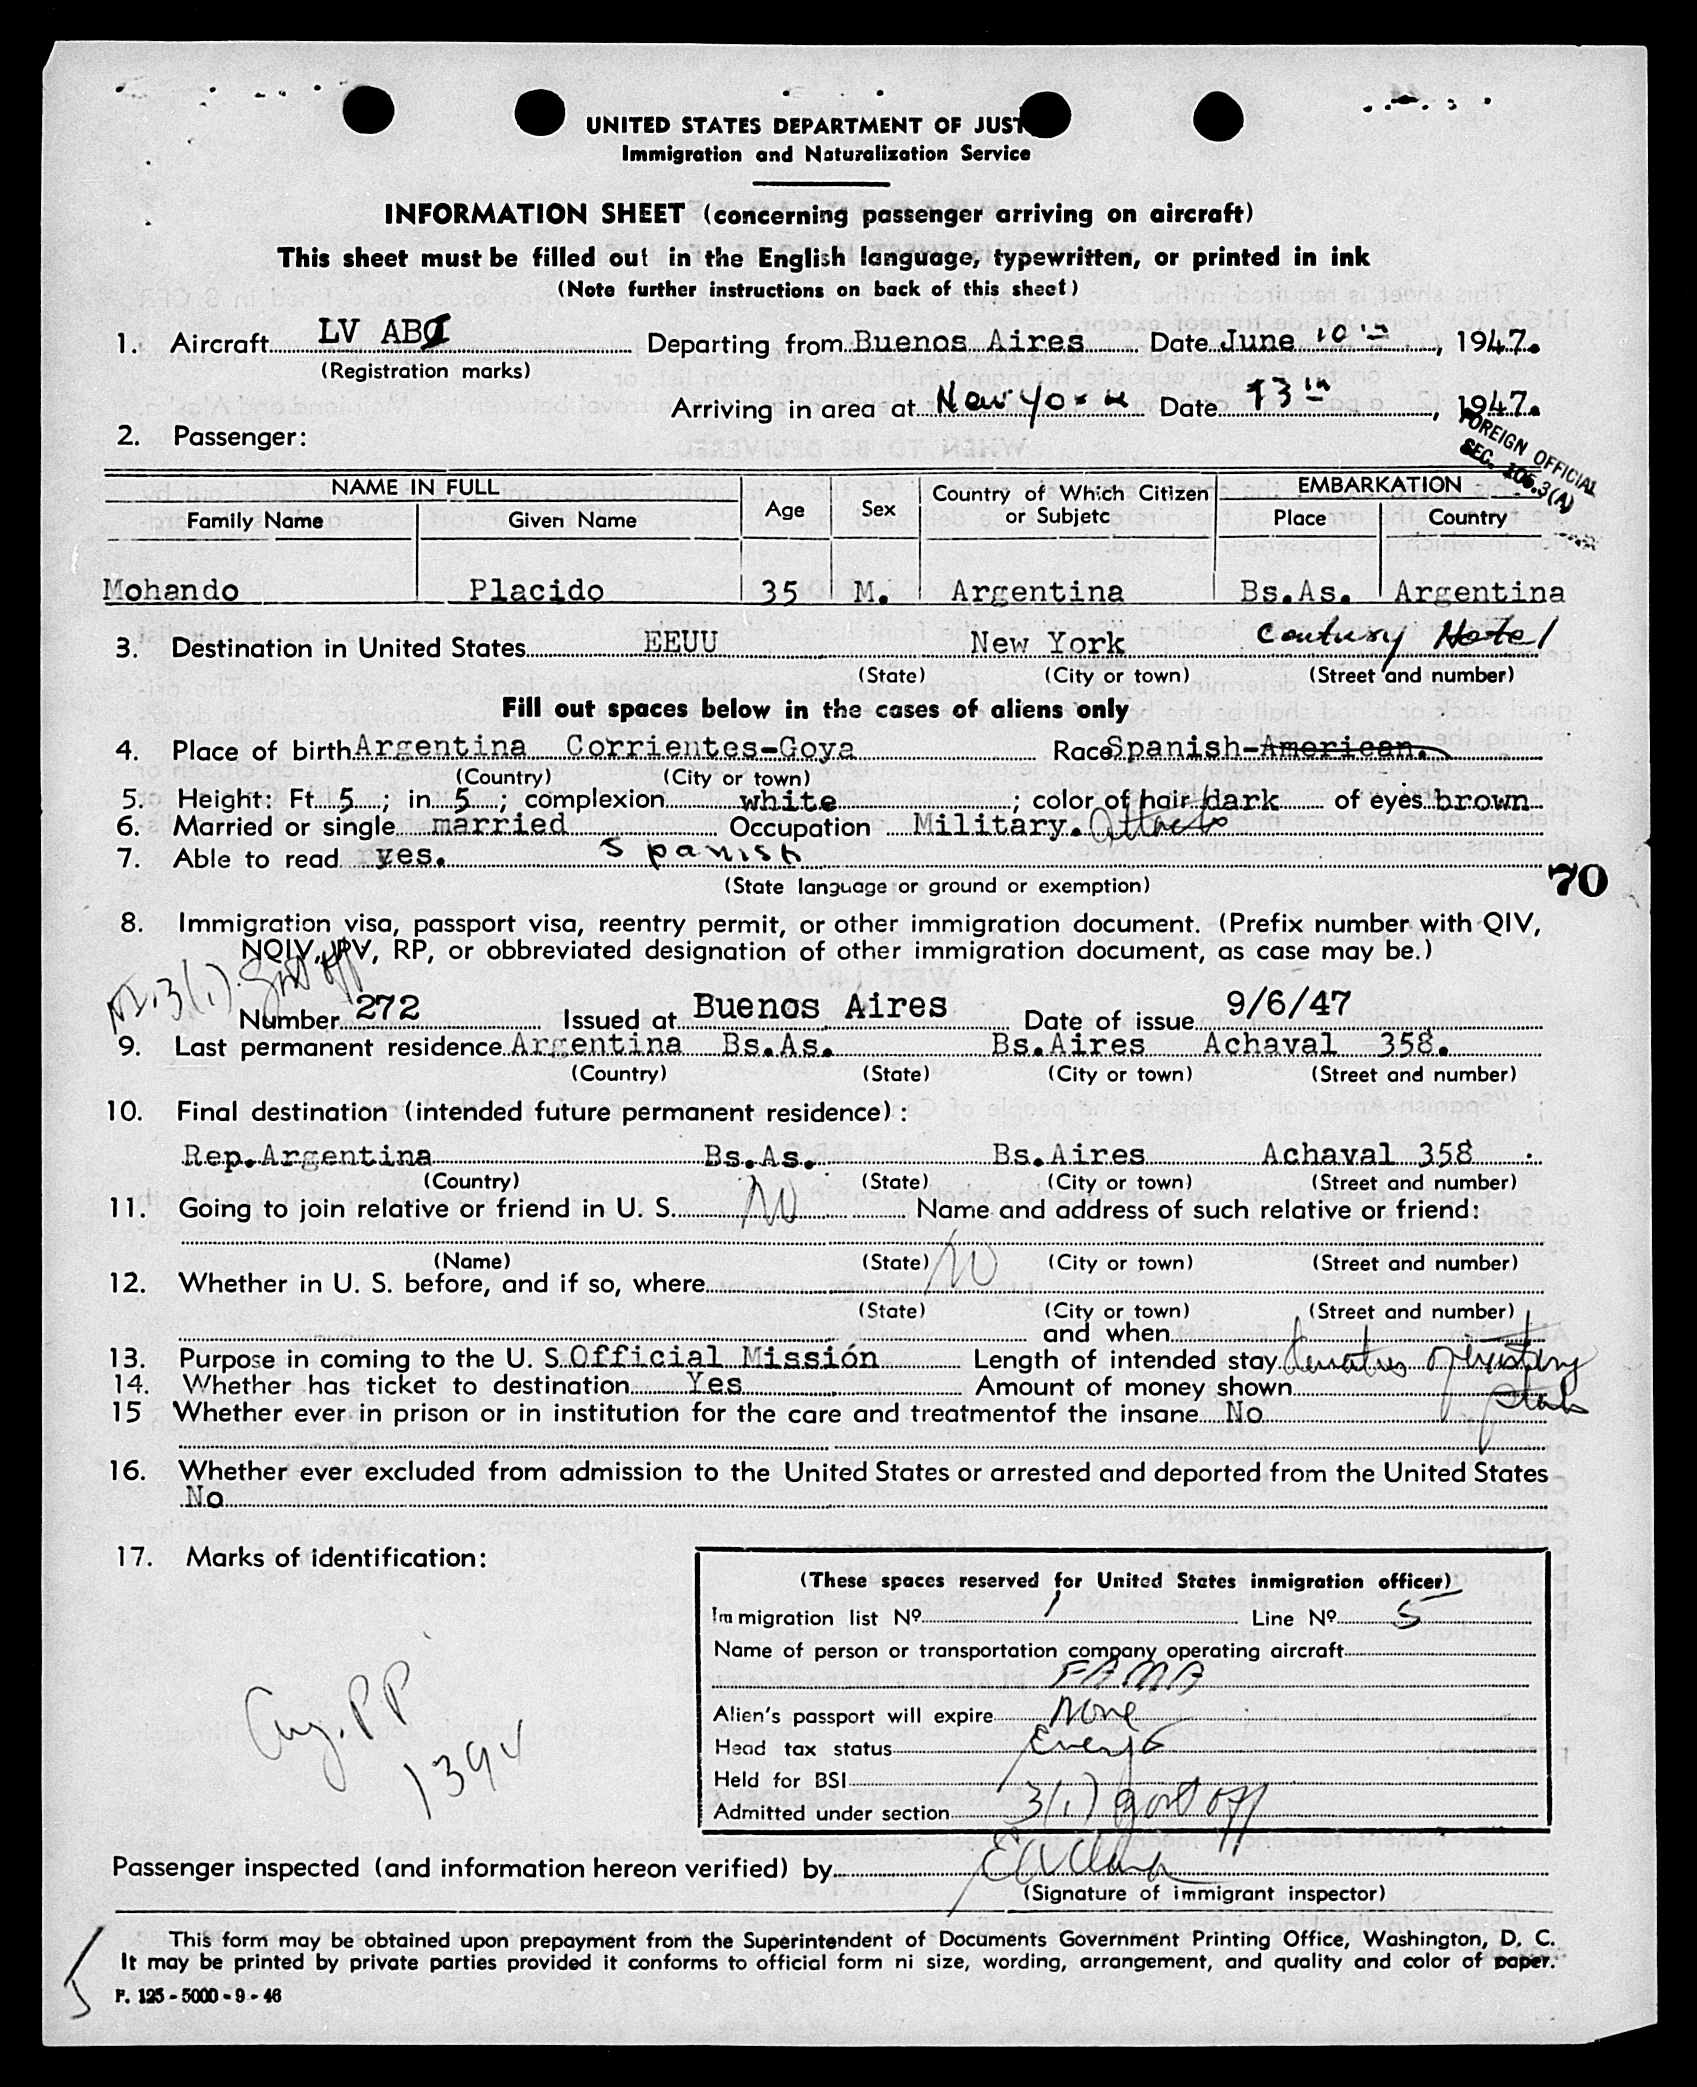 UNITED STATES DEPARTMENT OF JUST
Immigration and Naturalization Service
INFORMATION SHEET (concerning passenger arriving on aircraft)
This sheet must be filled out in the English language, typewritten, or printed in ink
(Note further instructions on back of this sheet)
1. Aircraft LV AB Departing from Buenos Aires Date June 10th, 1947.
(Registration marks)
Arriving in area at New York Date 13th, 1947.
FOREIGN OFFICIAL
SEC. 105.3(A)
2. Passenger:
NAME IN FULL Age Sex Country of Which Citizen or Subjetc EMBARKATION
Family Name Given Name Place Country
Mohando Placido 35 M. Argentina Bs.As. Argentina
3. Destination in United States EEUU New York Century Hotel
(State) (City or town) (Street and number)
Fill out spaces below in the cases of aliens only
4. Place of birth Argentina Corrientes-Goya Race Spanish-American.
(Country) (City or town)
5. Height: Ft. 5; in. 5; complexion white; color of hair dark of eyes brown
6. Married or single married Occupation Military.
7. Able to read yes. Spanish
(State language or ground or exemption)
70
8. Immigration visa, passport visa, reentry permit, or other immigration document. (Prefix number with QIV,
NQIV, PV, RP, or obbreviated designation of other immigration document, as case may be.)
Number 272 Issued at Buenos Aires Date of issue 9/6/47
9. Last permanent residence Argentina Bs.As. Bs.Aires Achaval 358.
(Country) (State) (City or town) (Street and number)
10. Final destination (intended future permanent residence):
Rep.Argentina Bs.As. Bs.Aires Achaval 358.
(Country) (State) (City or town) (Street and number)
11. Going to join relative or friend in U. S. No Name and address of such relative or friend:
(Name) (State) (City or town) (Street and number)
12. Whether in U. S. before, and if so, where No
(State) (City or town) (Street and number)
and when
13. Purpose in coming to the U. S. Official Missión Length of intended stay
14. Whether has ticket to destination Yes Amount of money shown
15 Whether ever in prison or in institution for the care and treatmentof the insane No
16. Whether ever excluded from admission to the United States or arrested and deported from the United States
No
17. Marks of identification:
Arg. PP
1394
(These spaces reserved for United States inmigration officer)
Immigration list Nº 1 Line Nº 5
Name of person or transportation company operating aircraft
FAMA
Alien's passport will expire None
Head tax status Exempt
Held for BSI
Admitted under section 3(1) govt off
Passenger inspected (and information hereon verified) by
(Signature of immigrant inspector)
This form may be obtained upon prepayment from the Superintendent of Documents Government Printing Office, Washington, D. C.
It may be printed by private parties provided it conforms to official form ni size, wording, arrangement, and quality and color of paper.
F. 125 - 5000 - 9 - 46